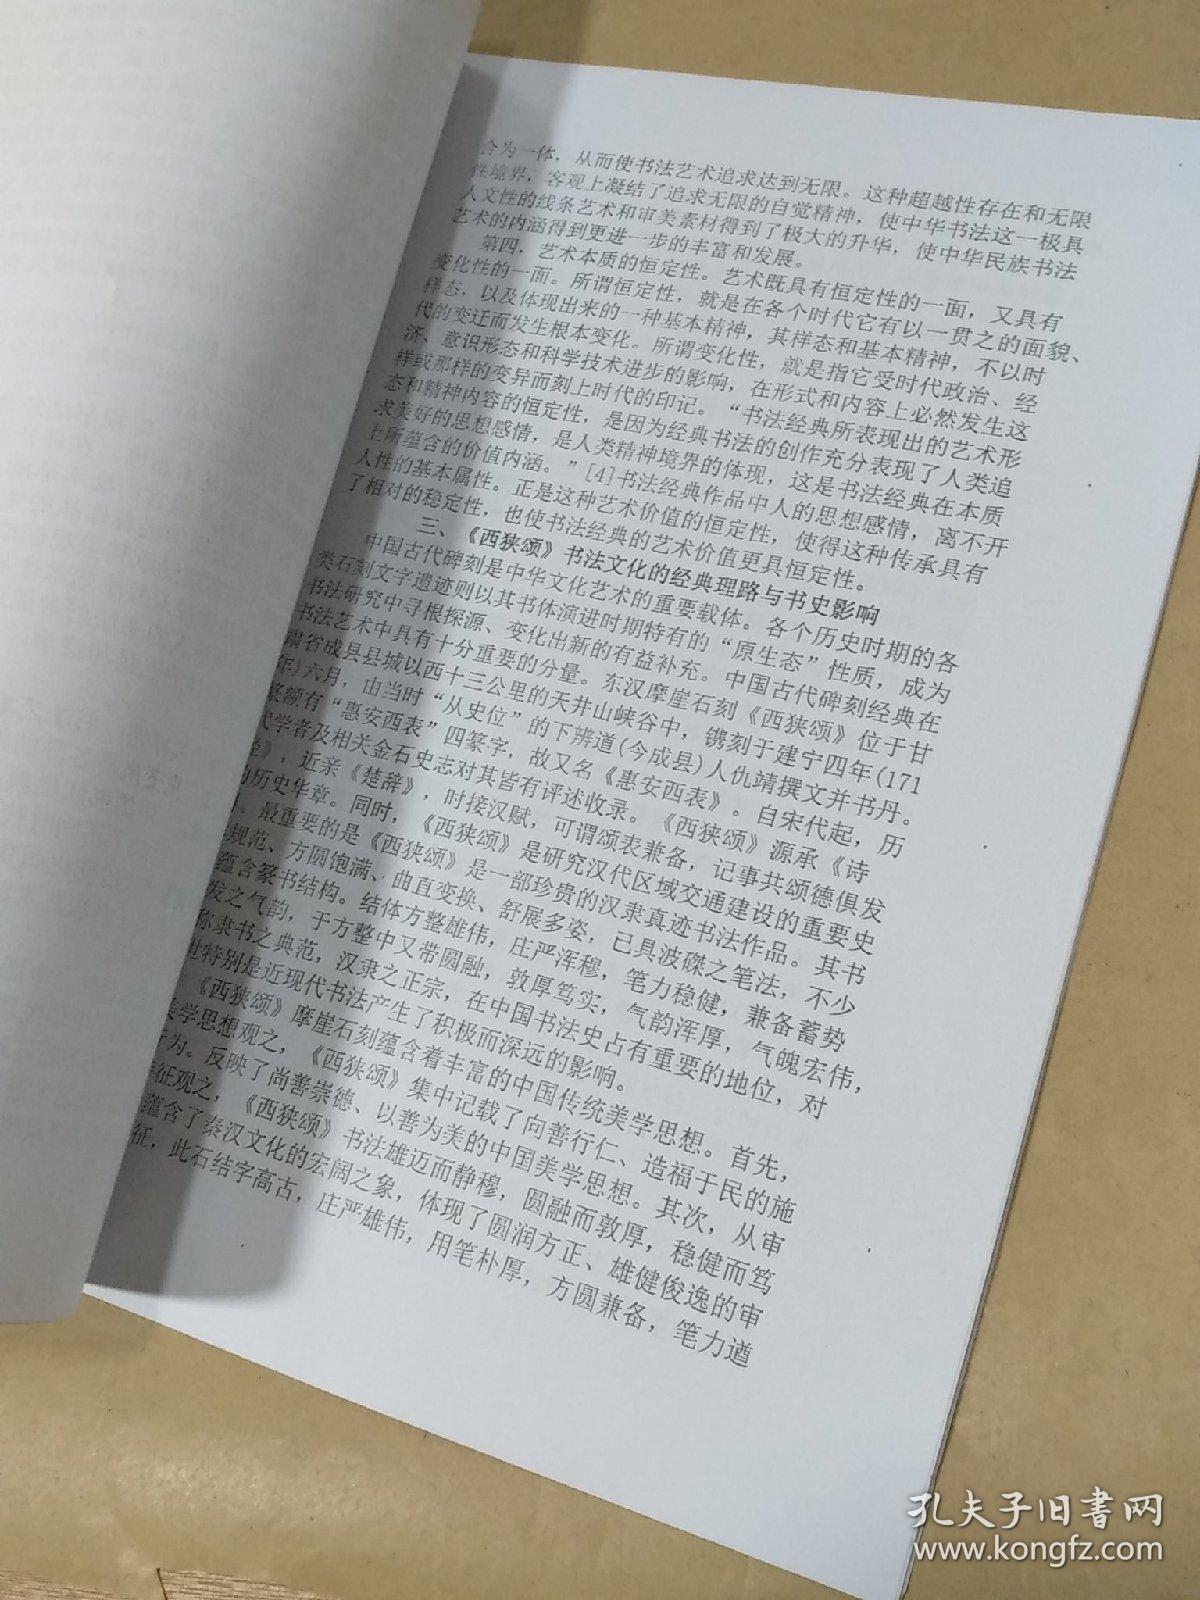 合为一体，从而使书法艺术追求达到无限。这种超越性存在和无限
性境界，客观上凝结了追求无限的自觉精神，使中华书法这一极具
人文性的线条艺术和审美素材得到了极大的升华，使中华民族书法
艺术的内涵得到更进一步的丰富和发展。
第四，艺术本质的恒定性。艺术既具有恒定性的一面，又具有
变化性的一面。所谓恒定性，就是在各个时代它有以一贯之的面貌、
样态，以及体现出来的一种基本精神，其样态和基本精神，不以时
代的变迁而发生根本变化。所谓变化性，就是指它受时代政治、经
济、意识形态和科学技术进步的影响，在形式和内容上必然发生这
样或那样的变异而刻上时代的印记。“书法经典所表现出的艺术形
态和精神内容的恒定性，是因为经典书法的创作充分表现了人类追
求美好的思想感情，是人类精神境界的体现，这是书法经典在本质
上所蕴含的价值内涵。”[4]书法经典作品中人的思想感情，离不开
人性的基本属性。正是这种艺术价值的恒定性，使得这种传承具有
了相对的稳定性，也使书法经典的艺术价值更具恒定性。
三、《西狭颂》书法文化的经典理路与书史影响
中国古代碑刻是中华文化艺术的重要载体。各个历史时期的各
类石刻文字遗迹则以其书体演进时期特有的“原生态”性质，成为
书法研究中寻根探源、变化出新的有益补充。中国古代碑刻经典在
书法艺术中具有十分重要的分量。东汉摩崖石刻《西狭颂》位于甘
肃省成县县城以西十三公里的天井山峡谷中，镌刻于建宁四年(171
年)六月，由当时“从史位”的下辨道(今成县)人仇靖撰文并书丹。
篆额有“惠安西表”四篆字，故又名《惠安西表》。自宋代起，历
代学者及相关金石史志对其皆有评述收录。《西狭颂》源承《诗
经》，近亲《楚辞》，时接汉赋，可谓颂表兼备，记事共颂德俱发
的历史华章。同时，《西狭颂》是研究汉代区域交通建设的重要史
。最重要的是《西狭颂》是一部珍贵的汉隶真迹书法作品。其书
规范、方圆饱满、曲直变换、舒展多姿，已具波磔之笔法，不少
蕴含篆书结构。结体方整雄伟，庄严浑穆，笔力稳健，兼备蓄势
发之气韵，于方整中又带圆融，敦厚笃实，气韵浑厚，气魄宏伟，
称隶书之典范，汉隶之正宗，在中国书法史占有重要的地位，对
世特别是近现代书法产生了积极而深远的影响。
《西狭颂》摩崖石刻蕴含着丰富的中国传统美学思想。首先，
美学思想观之，《西狭颂》集中记载了向善行仁、造福于民的施
为。反映了尚善崇德、以善为美的中国美学思想。其次，从审
征观之，《西狭颂》书法雄迈而静穆，圆融而敦厚，稳健而笃
蕴含了秦汉文化的宏阔之象，体现了圆润方正、雄健俊逸的审
征，此石结字高古，庄严雄伟，用笔朴厚，方圆兼备，笔力遒
孔夫子旧书网
www.kongfz.com